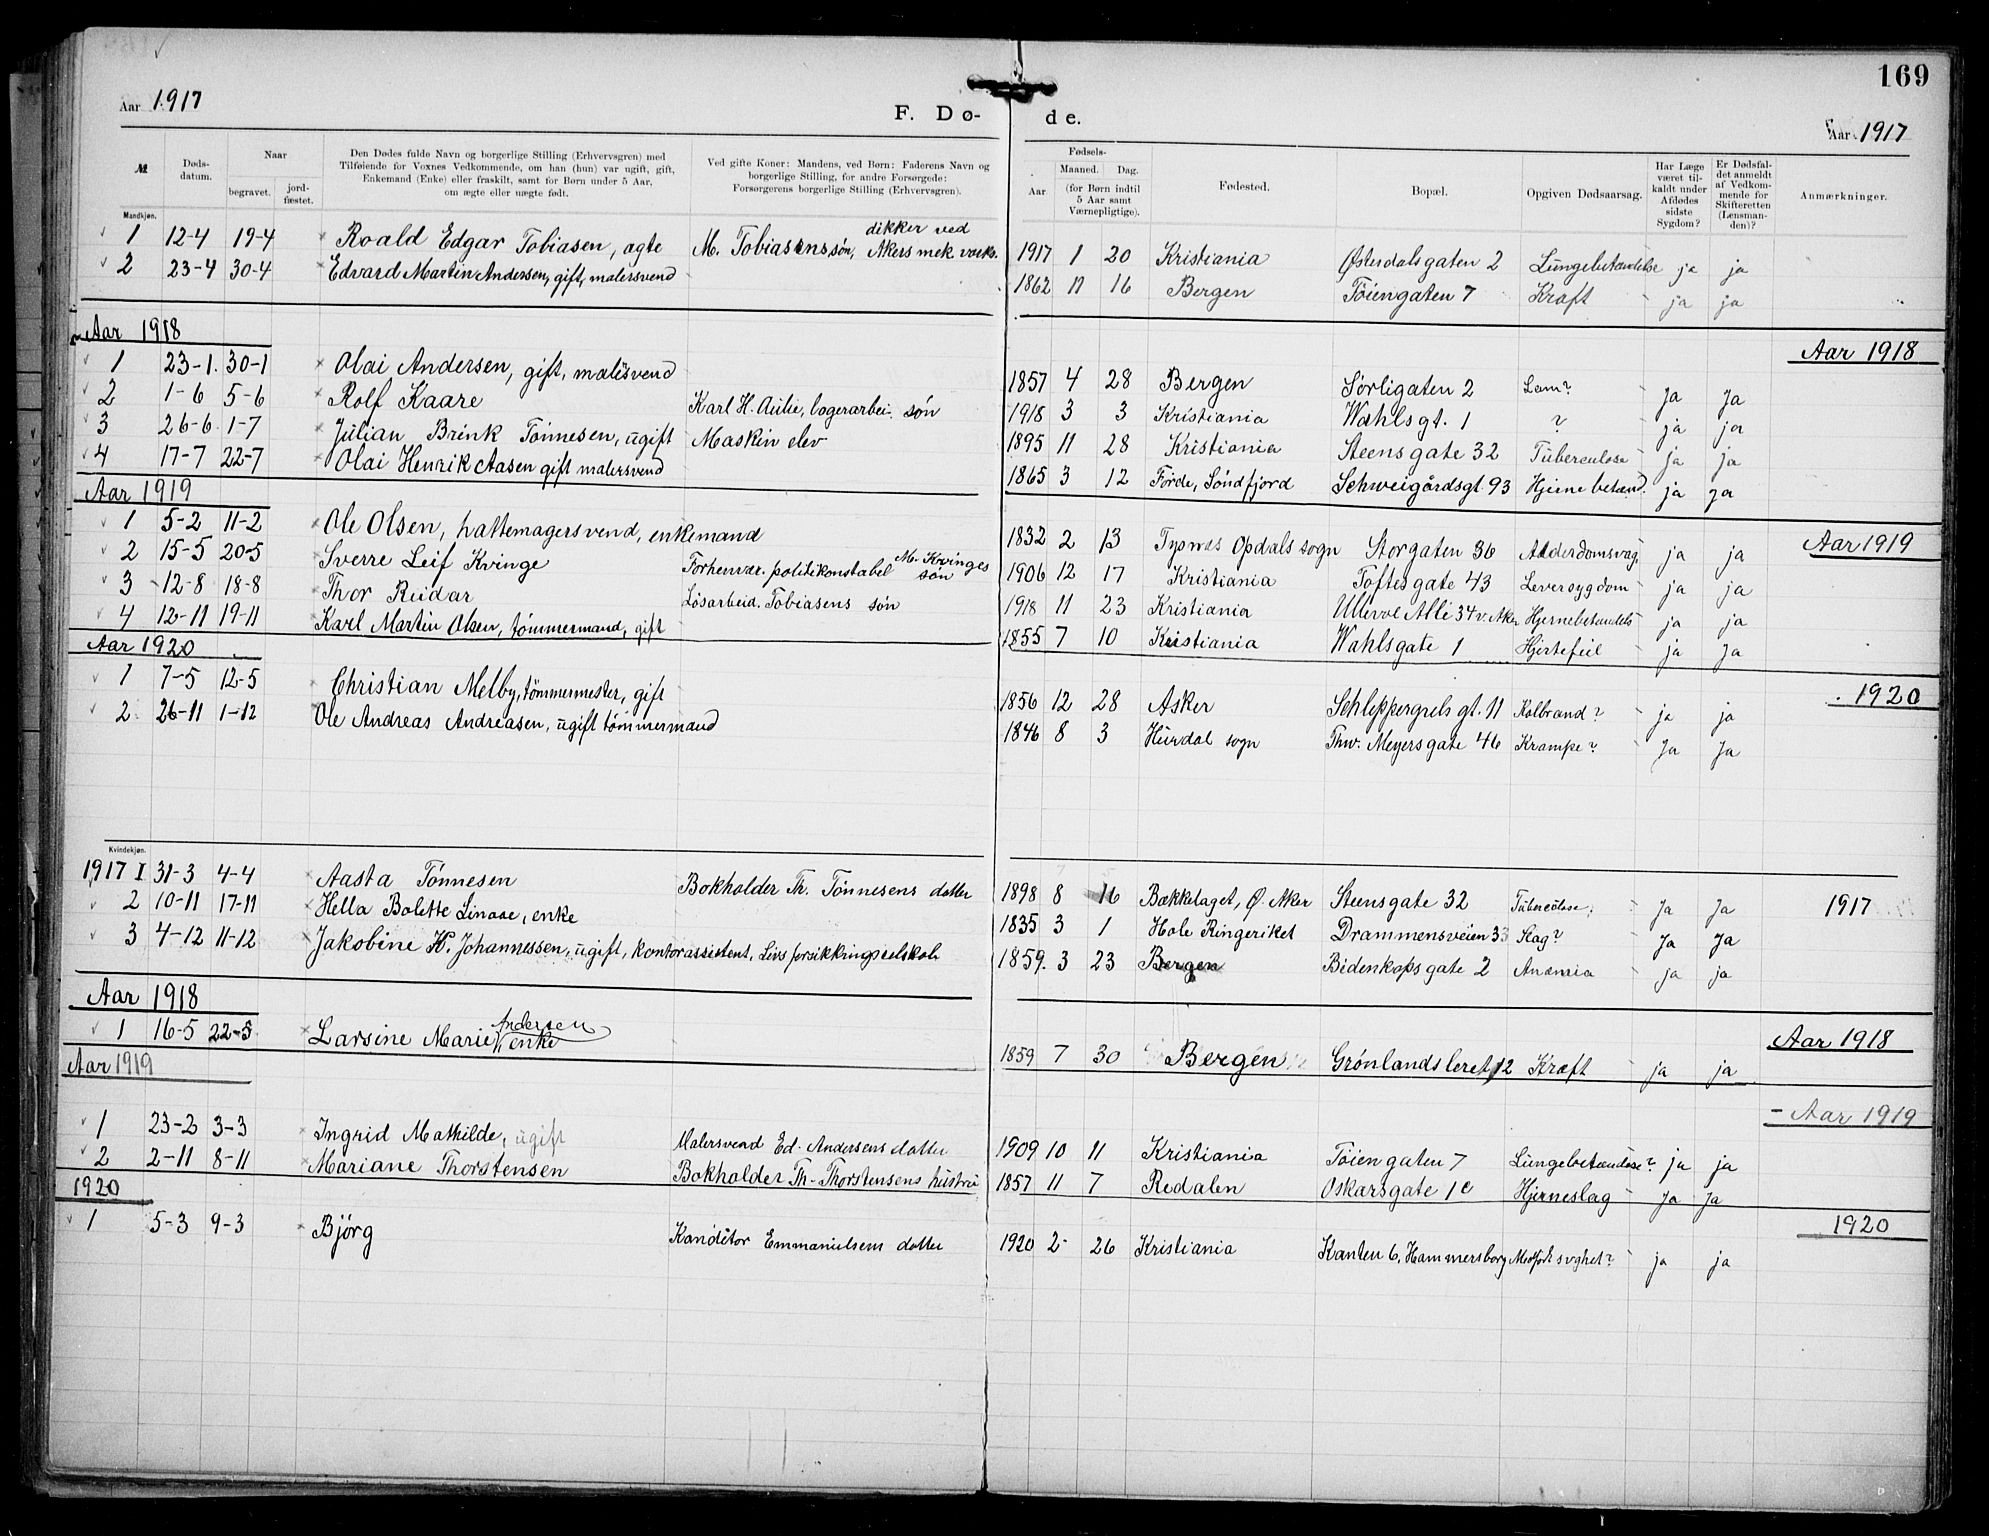 169
Aar 1917
F. Dø-
de.
Aar 1917
№
Døds-
datum.
Naar
begravet.
jord-
fæstet.
Den Dødes fulde Navn og borgerlige Stilling (Erhvervsgren) med
Tilføiende for Voxnes Vedkommende, om han (hun) var ugift, gift,
Enkemand (Enke) eller fraskilt, samt for Børn under 5 Aar,
om ægte eller uægte født.
Ved gifte Koner: Mandens, ved Børn: Faderens Navn og
borgerlige Stilling, for andre Forsørgede:
Forsørgerens borgerlige Stilling (Erhvervsgren).
Fødsels-
Aar
Maaned.
Dag.
(for Børn indtil
5 Aar samt
Værnepligtige).
Fødested.
Bopæl.
Opgiven Dødsaarsag.
Har Læge
været til-
kaldt under
Afdødes
sidste
Sygdom?
Er Dødsfal-
det anmeldt
af Vedkom-
mende for
Skifteretten
(Lensman-
den)?
Anmærkninger.
Mandkjøn.
1 12-4 19-4 Roald Edgar Tobiasen, ægte M. Tobiasens søn, dikker ved Akers mek værks. 1917 1 20 Kristiania Østerdalsgaten 2 Lungebetændelse ja ja
2 23-4 30-4 Edvard Martin Andersen, gift, malersvend 1862 11 16 Bergen Töiengaten 7 Kræft ja ja
Aar 1918
Aar 1918
1 23-1. 30-1 Olai Andersen, gift, malersvend 1857 4 28 Bergen Sörligaten 2 Lam? ja ja
2 1-6 5-6 Rolf Kaare Karl H. Aulie, lagerarbei. søn 1918 3 3 Kristiania Wahlsgt. 1 ? ja ja
3 26-6 1-7 Julian Brink Tönnesen, ugift Maskin elev 1895 11 28 Kristiania Steensgate 32 Tuberculose ja ja
4 17-7 22-7 Olai Henrik Aasen gift malersvend 1865 3 12 Förde, Söndfjord Schweigårdsgt. 93 Hjerne betænd. ja ja
Aar 1919
Aar 1919
1 5-2 11-2 Ole Olsen, hattemagersvend, enkemand 1832 2 13 Tysnæs Opdals sogn Storgaten 36 Alderdomsvag. ja ja
2 15-5 20-5 Sverre Leif Kvinge Forhenvær. politikonstabel M. Kvinges søn 1906 12 17 Kristiania Toftesgate 43 Leversygdom ja ja
3 12-8 18-8 Thor Reidar Løsarbeid. Tobiasens søn 1918 11 23 Kristiania Ullevol Allé 34 v. Aker Hjernebetændels ja ja
4 12-11 19-11 Karl Martin Olsen, tömmermand, gift 1855 7 10 Kristiania Wahlsgate 1 Hjertefeil ja ja
Aar 1920
1920
1 7-5 12-5 Christian Melby, tömmermester, gift 1856 12 28 Asker Schleppergrels gt. 11 Kolbrand? ja ja
2 26-11 1-12 Ole Andreas Andreasen, ugift tömmermand 1846 8 3 Hurdal sogn Thv. Meyersgate 46 Krampe? ja ja
Kvindekjøn.
1917 1 31-3 4-4 Aasta Tönnesen Bokholder Th. Tönnesens datter 1898 8 16 Bækkelaget, Ø. Aker Steensgate 32 Tuberculose, ja ja 1917
2 10-11 17-11 Hella Bolette Linaae, enke 1835 3 1 Hole Ringeriket Drammensveien 33 Slag? ja ja
3 4-12 11-12 Jakobine K. Johannessen, ugift, kontorassistent, Livs forsikkringsselskab 1859. 3 23 Bergen Bidenkapsgate 2 Anæmia ja ja
Aar 1918
Aar 1918
1 16-5 22-5 Larsine Marie Andersen enke 1859 7 30 Bergen Grönlandsleret 12 Kræft ja ja
Aar 1919
Aar 1919
1 23-2 3-3 Ingrid Mathilde, ugift Malersvend Ed. Andersens datter 1909 10 11 Kristiania Töiengaten 7 Lungebetændelse? ja ja
2 2-11 8-11 Mariane Thorstensen Bokholder Th. Thorstensens hustru 1857 11 7 Redalen Oskarsgate 1c Hjerneslag ja ja
1920
1920
1 5-3 9-3 Björg Konditor Emmanuelsens datter 1920 2 26 Kristiania Kanten 6, Hammersborg Medfödt svghet? ja ja